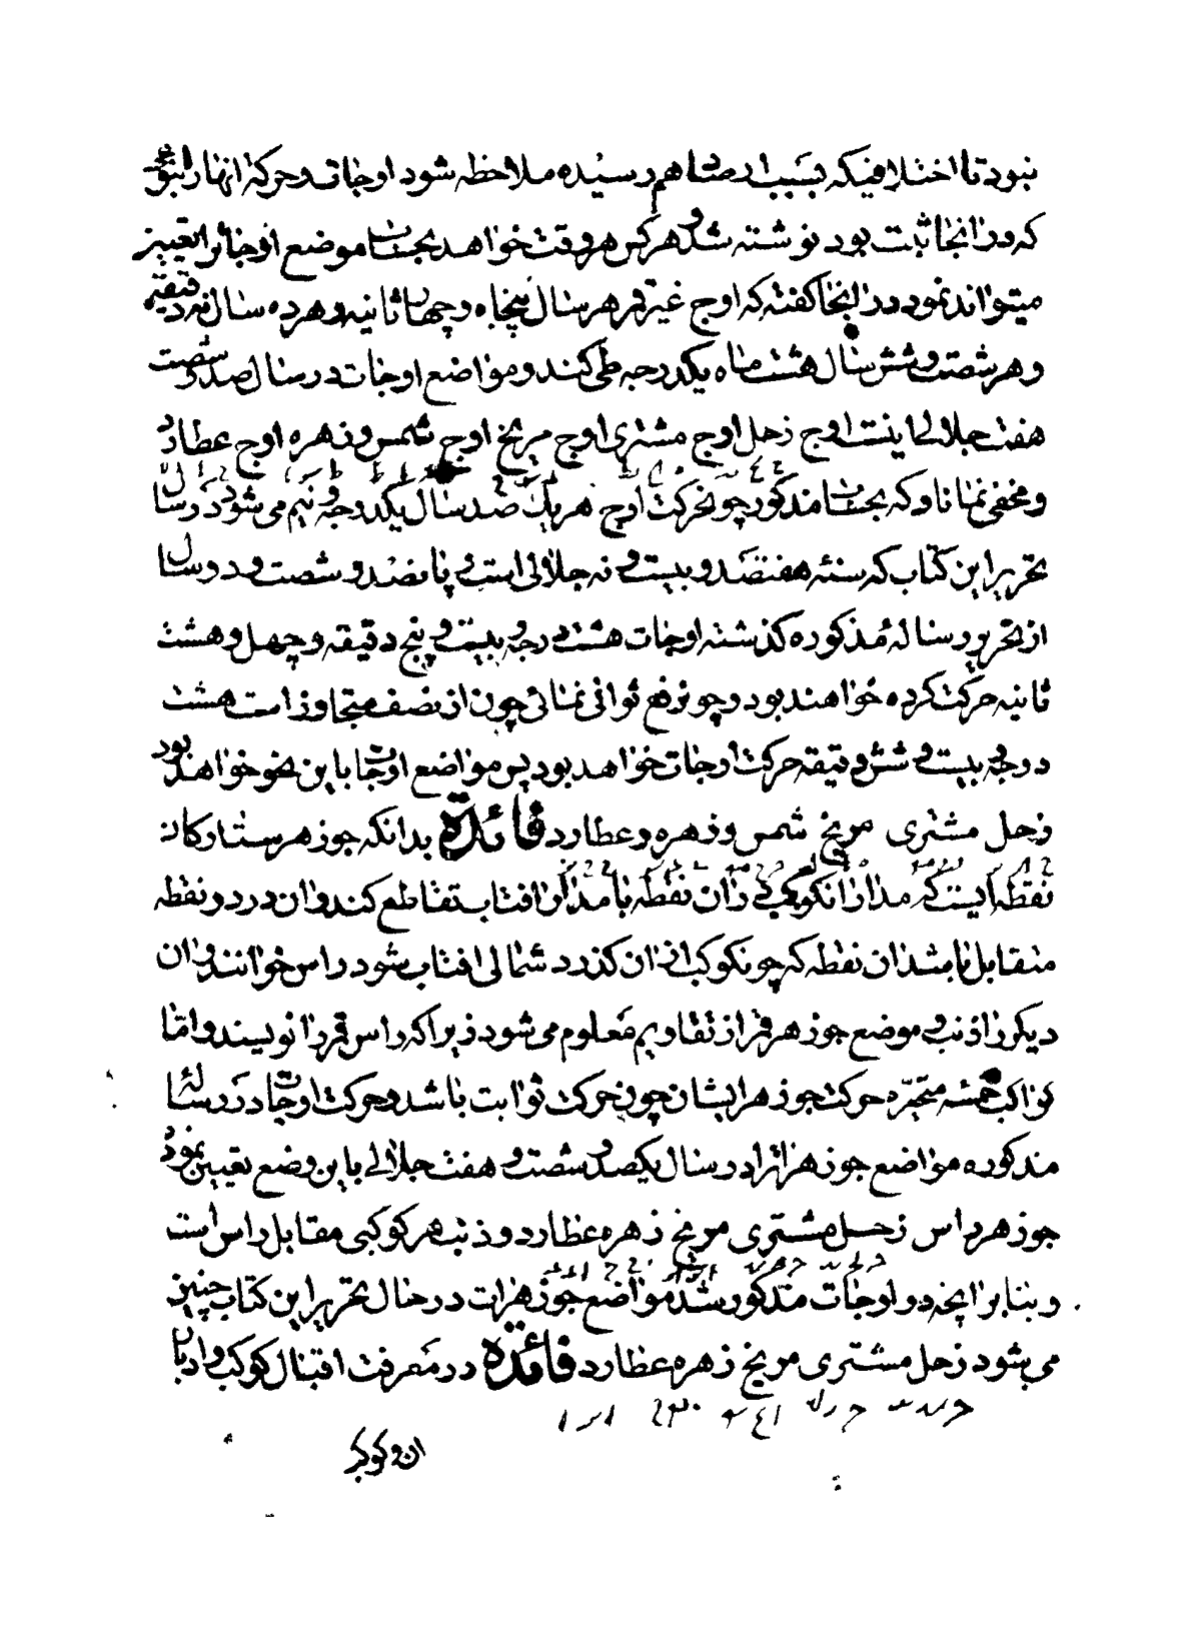 نبود تا اختلافیکه بسبب ارصاد هم رسیده ملاحظه شود اوجات و حرکة انها را بنوعی
که در انجا ثبت بود نوشته شد و هرکس هر وقت خواهد بحساب موضع اوجات را تعیین
میتواند نمود در اینجا کفته که اوج غیر قمر هر سال پنجاه و چهار ثانیه و هر ده سال نه دقیقه
و هر شصت و شش سال هشت ماه یکدرجه طی کند و مواضع اوجات در سال صد و شصت
هفت جلالی اینست اوج زحل اوج مشتری اوج مریخ اوج شمس و زهره اوج عطارد
و مخفی نماناد که بحساب مذکور چون حرکت اوج هر یک صد سال یکدرجه و نیم می شود در سال
تحریر این کتاب که سنه هفتصد و بیست و نه جلالی است پانصد و شصت و دو سال
از تحریر رساله مذکوره کذشته اوجات هشت درجه و بیست و پنج دقیقه و چهل و هشت
ثانیه حرکت کرده خواهند بود و چون رفع ثوانی نمائی چون از نصف متجاوز است هشت
درجه بیست و شش دقیقه حرکت اوجات خواهد بود پس مواضع اوجات باین نحو خواهد بود
زحل مشتری مریخ شمس و زهره و عطارد فائده بدانکه جوزهر ستارکان
نقطه ایست که مدار انکوکب در ان نقطه با مدار افتاب تقاطع کند و ان در دو نقطه
متقابل باشد ان نقطه که چون کوکب از ان کذرد شمالی افتاب شود راس خوانند و ان
دیکر را ذنب و موضع جوزهر قمر از تقاویم معلوم می شود زیرا که راس قمر را نویسند و اما
کواکب خمسه متحیره حرکت جوزهر ایشان چون حرکت ثوابت باشد و حرکت اوجات در رساله
مذکوره مواضع جوزهرات را در سال یکصد و شصت و هفت جلالی باین وضع تعیین نموده
جوزهر راس زحل مشتری مریخ زهره عطارد و ذنب هر کوکبی مقابل راس است
و بنا بر انچه در اوجات مذکور شد مواضع جوزهرات در حال تحریر این کتاب چنین
می شود زحل مشتری مریخ زهره عطارد فائده در معرفت اقبال کوکب و ادبار
ان کوکب